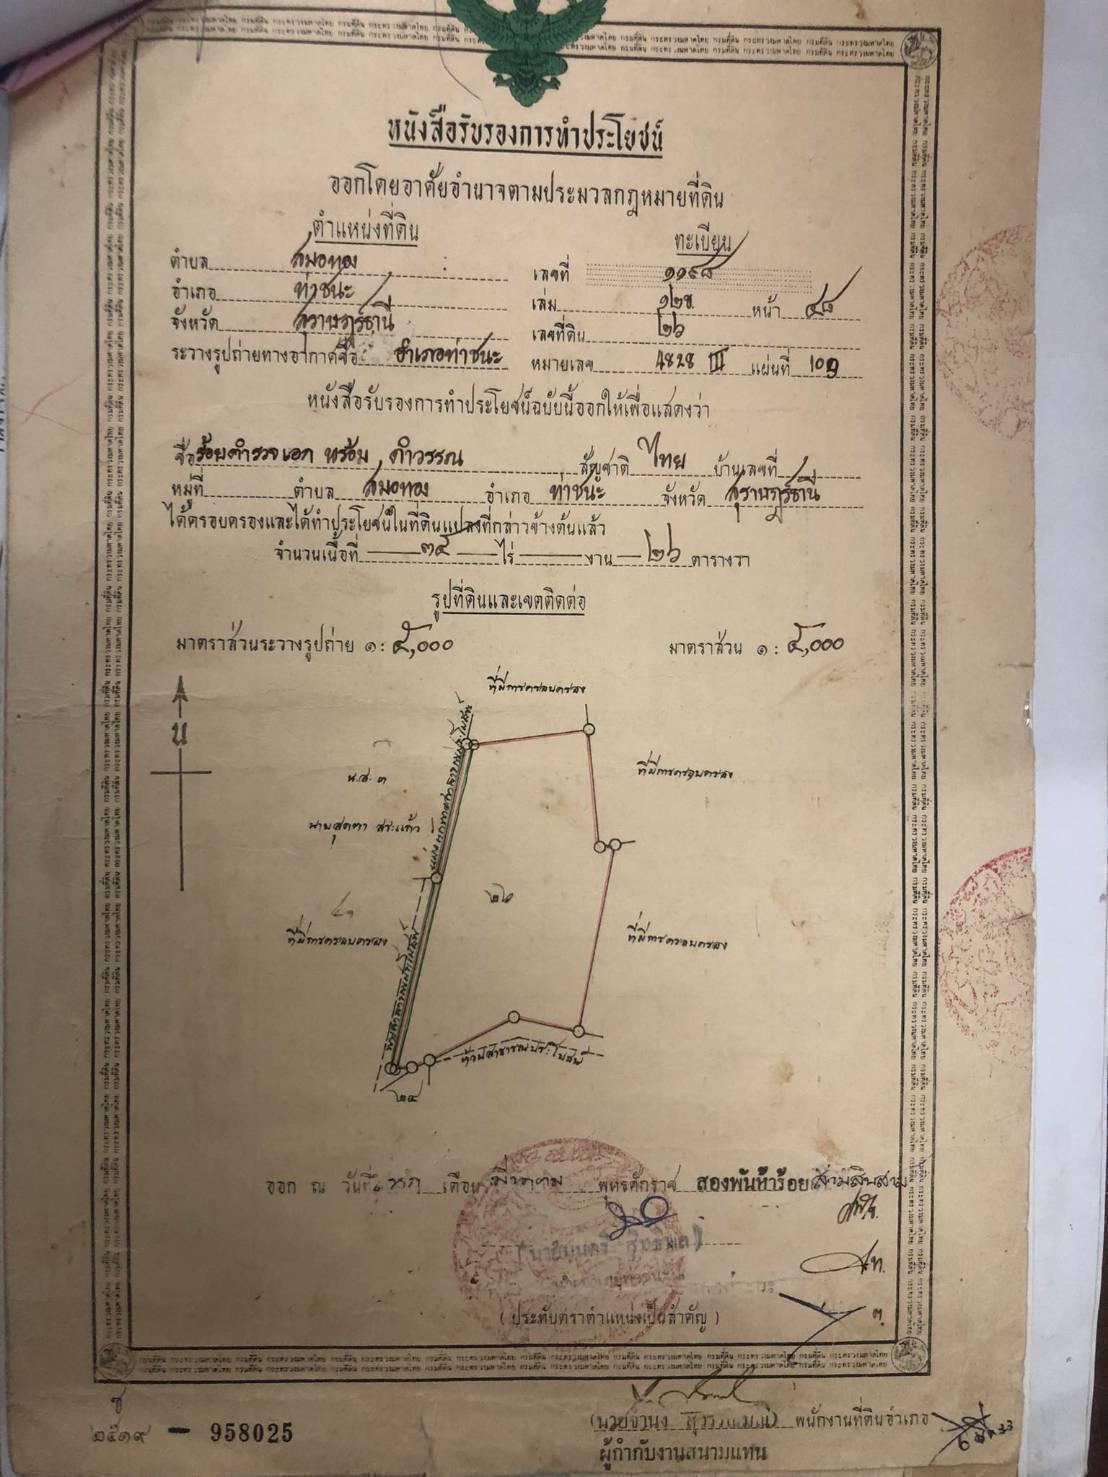 หนังสือรับรองการทำประโยชน์
ออกโดยอาศัยอำนาจตามประมวลกฎหมายที่ดิน
ตำแหน่งที่ดิน ทะเบียน
ตำบล สมอทอง เลขที่ ๑๑๙๘
อำเภอ ท่าชนะ เล่ม ๑๒ข. หน้า ๔๘
จังหวัด สุราษฎร์ธานี เลขที่ดิน ๒๖
ระวางรูปถ่ายทางอากาศชื่อ อำเภอท่าชนะ หมายเลข 4828 III แผ่นที่
หนังสือรับรองการทำประโยชน์ฉบับนี้ออกให้เพื่อแสดงว่า
ชื่อ ร้อยตำรวจเอก พร้อม ดำวรรณ สัญชาติ ไทย บ้านเลขที่
หมู่ที่ ตำบล สมอทอง อำเภอ ท่าชนะ จังหวัด สุราษฎร์ธานี
ได้ครอบครองและได้ทำประโยชน์ในที่ดินแปลงที่กล่าวข้างต้นแล้ว
จำนวนเนื้อที่ ๓๔ ไร่ งาน ๒๖ ตารางวา
รูปที่ดินและเขตติดต่อ
มาตราส่วนระวางรูปถ่าย ๑ : ๕,๐๐๐ มาตราส่วน ๑ : ๕,๐๐๐
ที่มีการครอบครอง
น
น.ส. ๓
ที่มีการครอบครอง
๒๖
ที่มีการครอบครอง
ที่มีการครอบครอง
ห้วยสาธารณประโยชน์
๒๔
ออก ณ วันที่ เดือน มีนาคม พุทธศักราช สองพันห้าร้อยสามสิบสาม
(ประทับตราตำแหน่งเป็นสำคัญ)
พนักงานที่ดินอำเภอ
ผู้กำกับงานสนามแทน
ช
๒๕๑๙ - 958025